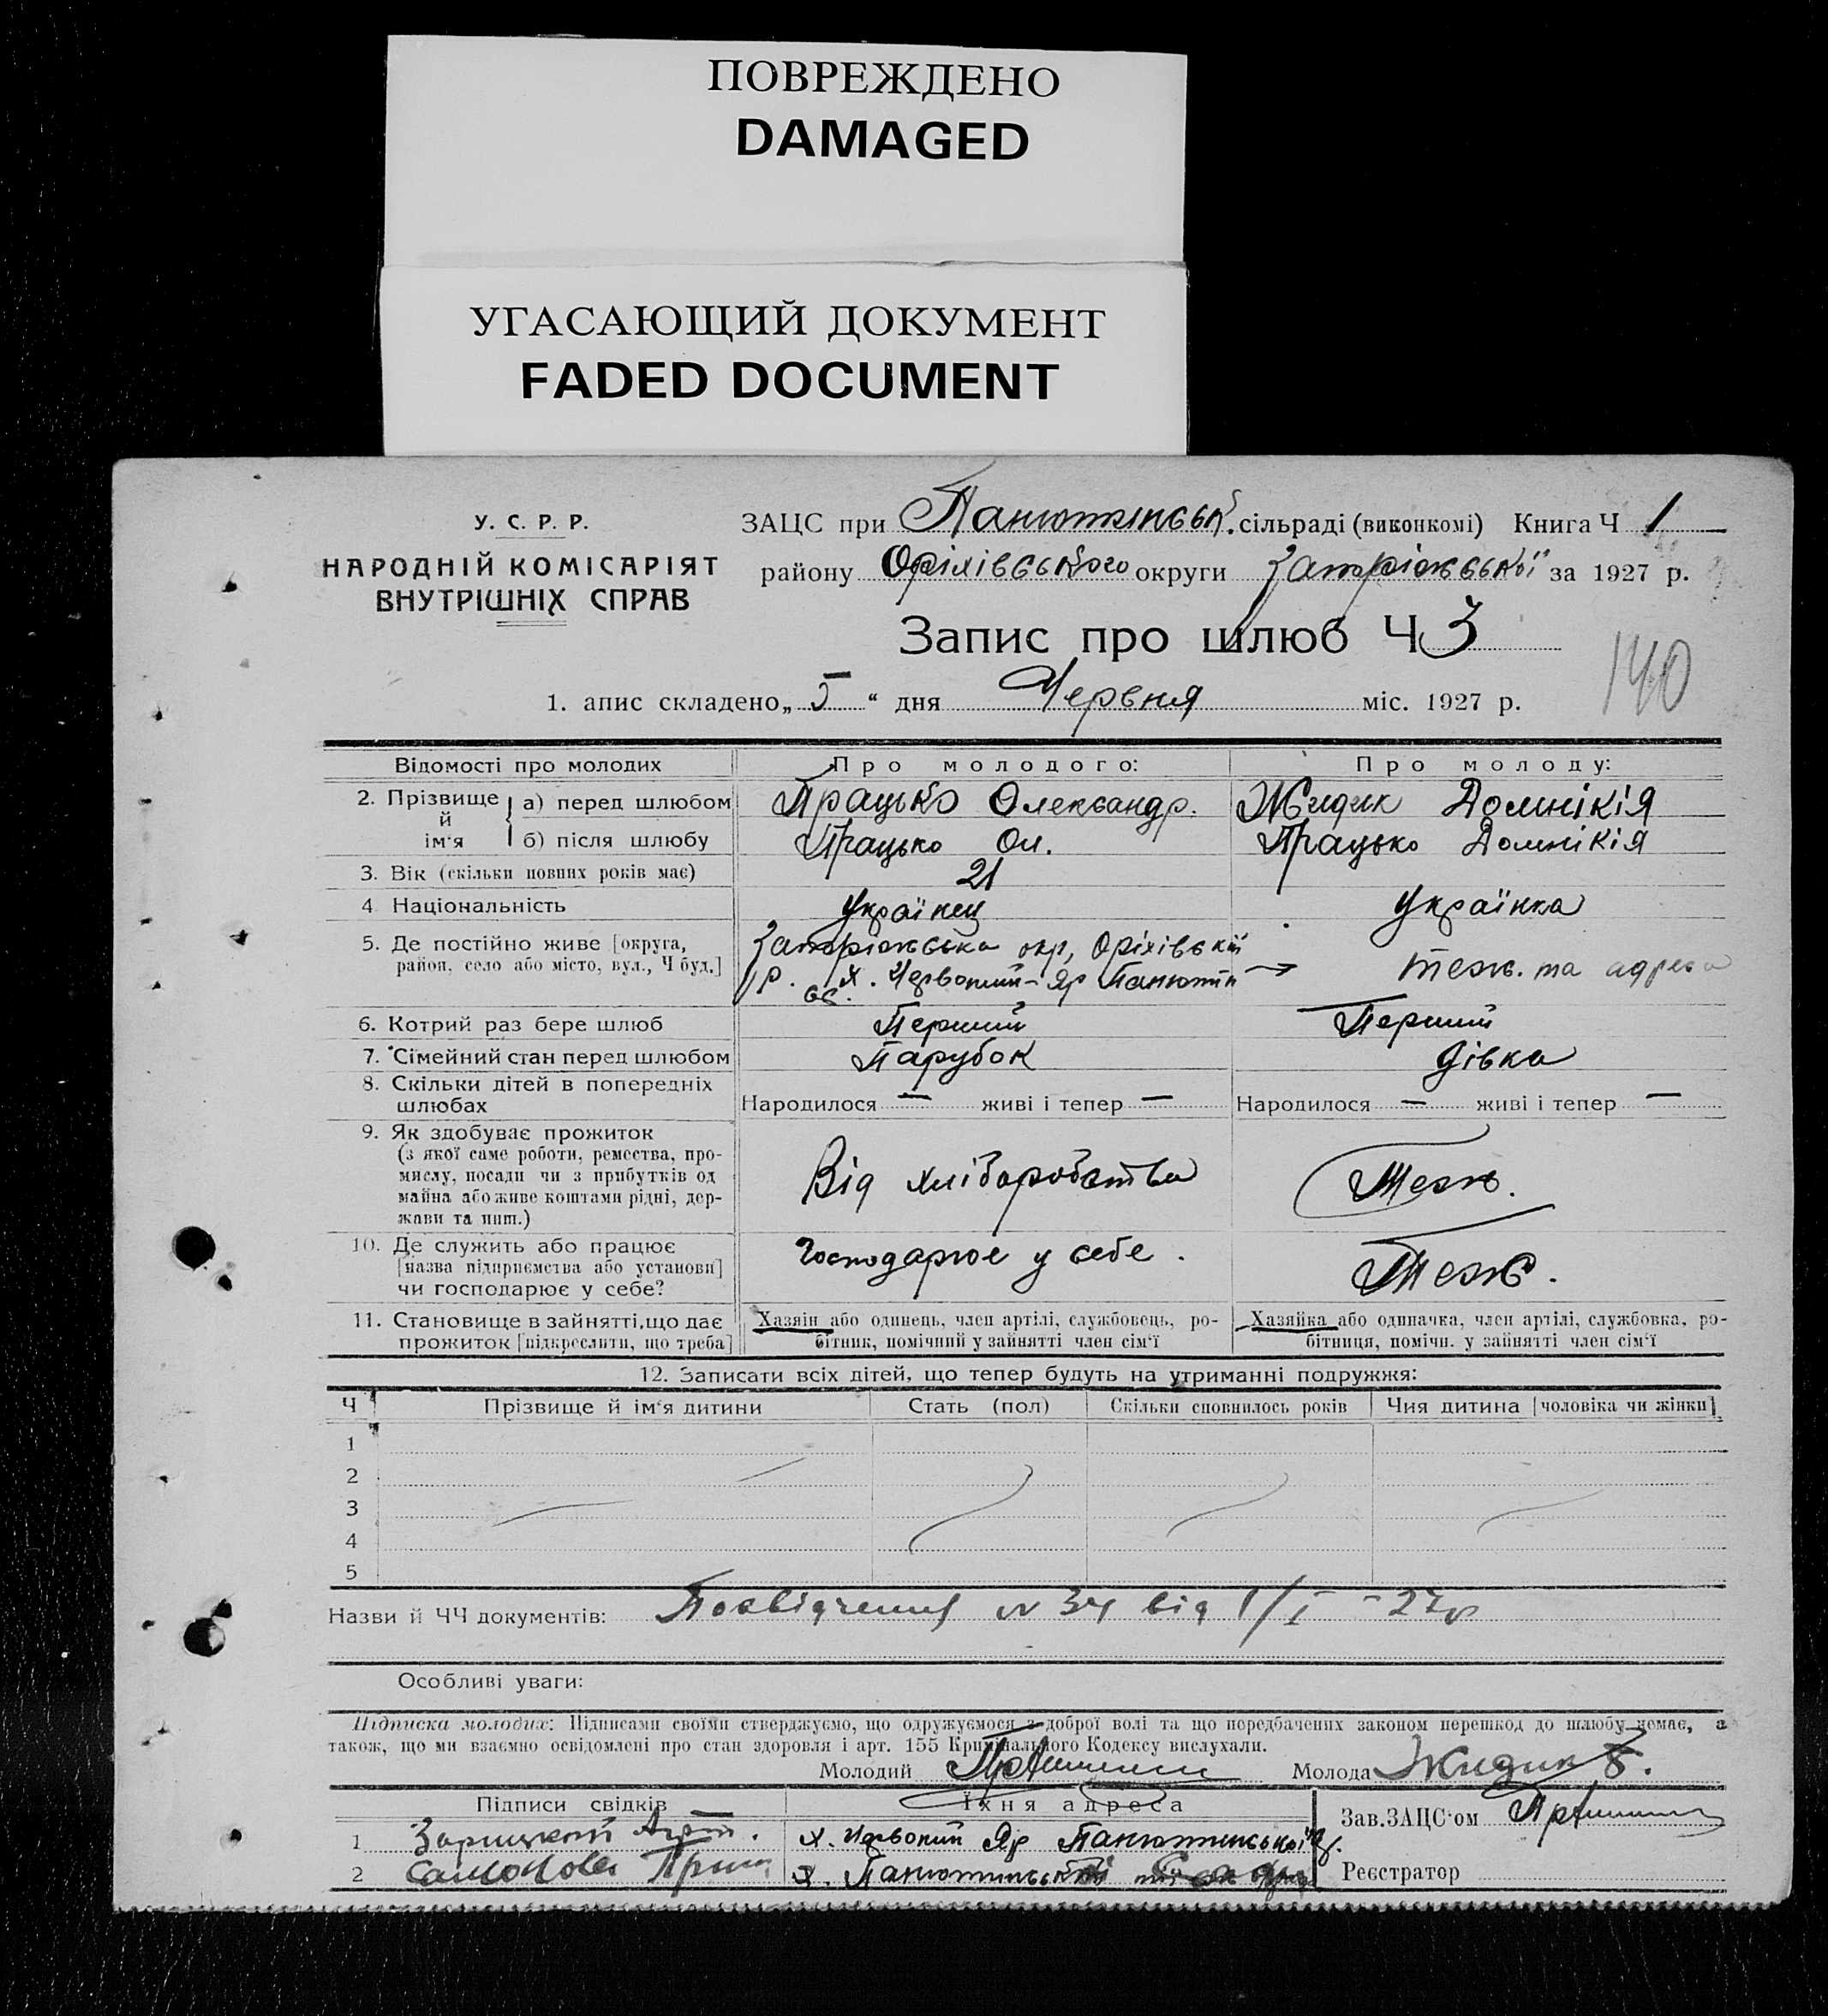 ПОВРЕЖДЕНО
DAMAGED
УГАСАЮЩИЙ ДОКУМЕНТ
FADED DOCUMENT
У. С. Р. Р.
НАРОДНІЙ КОМІСАРІЯТ
ВНУТРІШНІХ СПРАВ
ЗАЦС при Панютинськ. сільраді (виконкомі) Книга Ч 1
району Оріхівського округи Запоріжської за 1927 р.
Запис про шлюб Ч 3
140
1. апис складено „ 5 “ дня Червня міс. 1927 р.
Відомості про молодих Про молодого: Про молоду:
2. Прізвище й ім‘я а) перед шлюбом Працько Олександр. Жидик Домнікія
б) після шлюбу Працько Ол. Працько Домнікія
3. Вік (скільки повних років має) 21
4 Національність Українец Українка
5. Де постійно живе [округа, Запоріжська окр, Оріхівськ
район, село або місто, вул., Ч буд.] р. х. Червоний-Яр Панютин теж. та адреса
6. Котрий раз бере шлюб Перший Перший
7. Сімейний стан перед шлюбом Парубок Дівка
8. Скільки дітей в попередніх
шлюбах Народилося — живі і тепер — Народилося — живі і тепер —
9. Як здобуває прожиток
(з якої саме роботи, ремества, про-
мислу, посади чи з прибутків од Від хліборобства Теж.
майна або живе коштами рідні, дер-
жави та инш.)
10. Де служить або працює Господарює у себе. Теж.
[назва підприємства або установи]
чи господарює у себе?
11. Становище в зайнятті, що дає Хазяїн або одинець, член артілі, службовець, ро- Хазяйка або одиначка, член артілі, службовка, ро-
прожиток [підкреслити, що треба] бітник, помічний у зайнятті член сім‘ї бітниця, помічн. у зайнятті член сім‘ї
12. Записати всіх дітей, що тепер будуть на утриманні подружжя:
Ч Прізвище й ім‘я дитини Стать (пол) Скільки сповнилось років Чия дитина [чоловіка чи жінки]
1
2
3
4
5
Назви й ЧЧ документів: Посвідчення № 34 від 1/I - 27р
Особливі уваги:
Підписка молодих: Підписами своїми стверджуємо, що одружуємося з доброї волі та що передбачених законом перешкод до шлюбу немає, а
також, що ми взаємно освідомлені про стан здоровля і арт. 155 Кримінального Кодексу вислухали.
Молодий Молода Жидик
Підписи свідків Їхня адреса
Зав.ЗАЦС‘ом
1 х. Червоний Яр Панютинської
2 х. Панютинської
Реєстратор